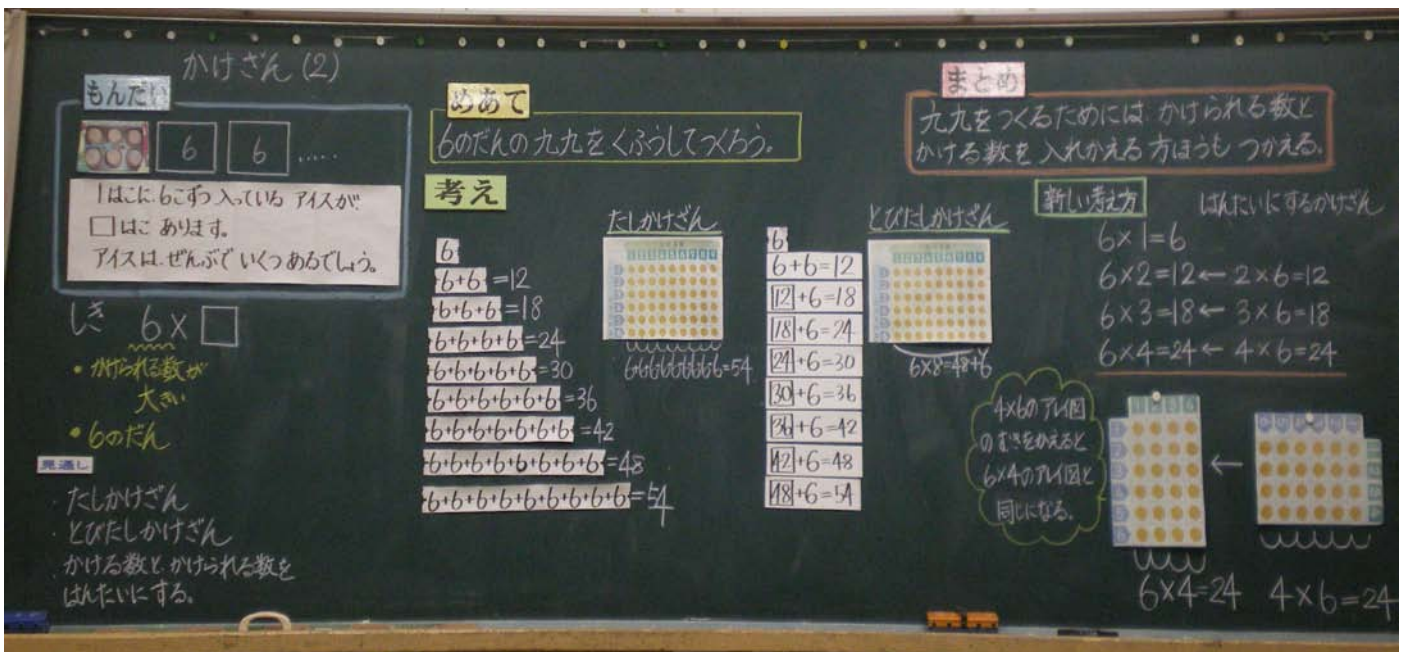 かけざん(2)
もんだい
6 6 .....
1はこに、6こずつ 入っている アイスが、
□はこ あります。
アイスは、ぜんぶで いくつ あるでしょう。
しき 6×□
・かけられる数が
大きい
・6のだん
見通し
・たしかけざん
・とびたしかけざん
・かける数と、かけられる数を
はんたいにする。
めあて
6のだんの九九をくふうしてつくろう。
考え
たしかけざん
6
6+6=12
6+6+6=18
6+6+6+6=24
6+6+6+6+6=30
6+6+6+6+6+6=36
6+6+6+6+6+6+6=42
6+6+6+6+6+6+6+6=48
6+6+6+6+6+6+6+6+6=54
1 2 3 4 5 6 7 8 9
666666666=54
とびたしかけざん
6
6+6=12
12+6=18
18+6=24
24+6=30
30+6=36
36+6=42
42+6=48
48+6=54
1 2 3 4 5 6 7 8 9
6×8=48+6
まとめ
九九をつくるためには、かけられる数と
かける数を 入れかえる 方ほうも つかえる。
新しい考え方
はんたいにするかけざん
6×1=6
6×2=12←2×6=12
6×3=18←3×6=18
6×4=24←4×6=24
4×6のアレイ図
のむきをかえると
6×4のアレイ図と
同じになる。
1 2 3 4
←
6×4=24
4×6=24